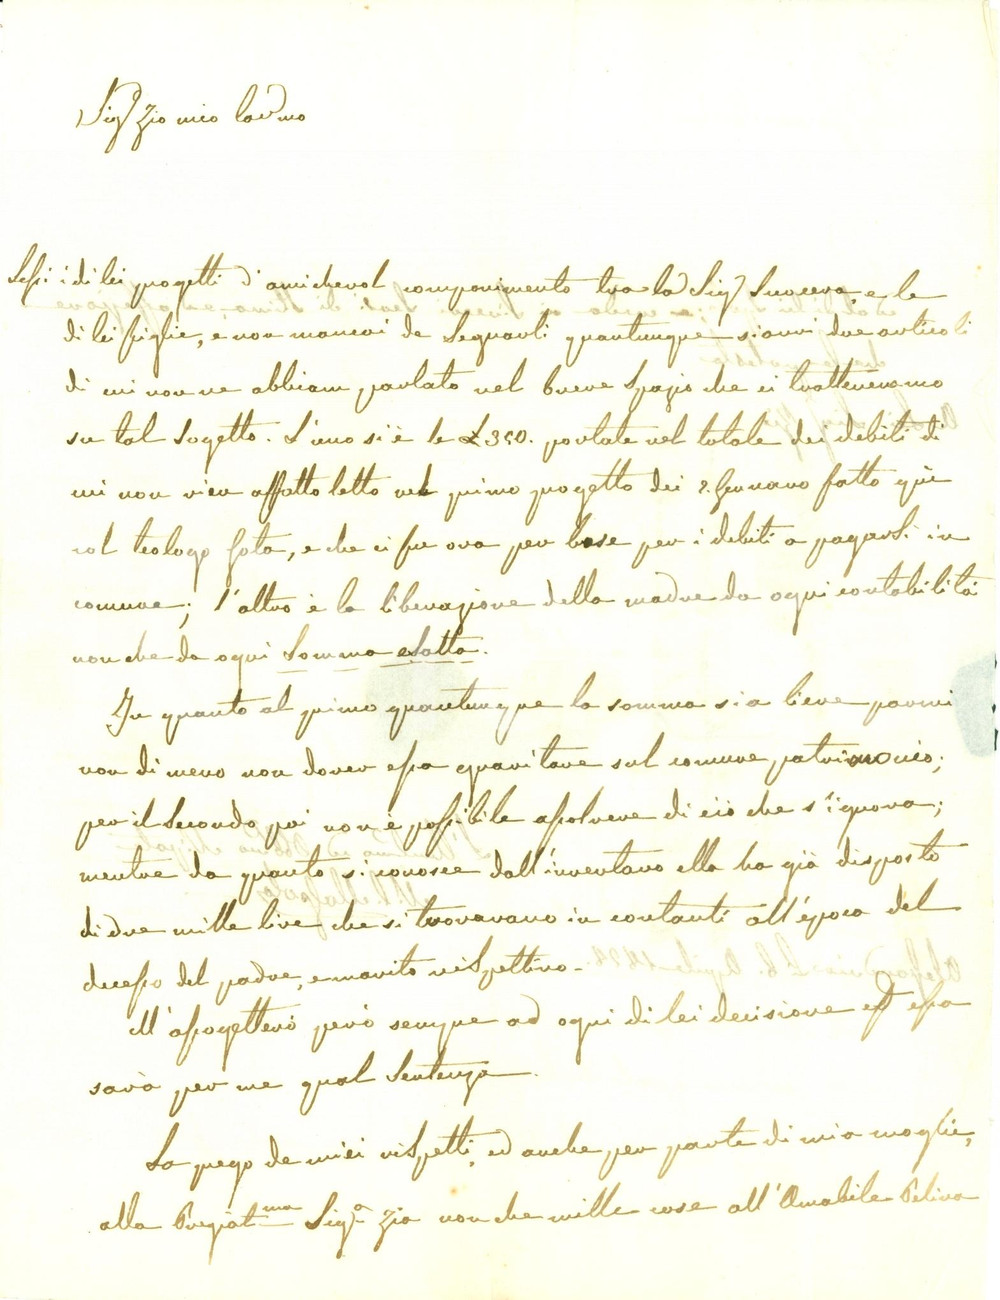 Sig.r Zio mio Car.mo
Lessi i di lei progetti d'amichevol componimento tra la Sig.ra Suocera, e le
di lei figlie, e non mancai de segnarli quantunque sianvi due articoli
di cui non ne abbiam parlato nel breve spazio che ci trattenevamo
su tal sogetto. L'uno si è le £ 350. portate nel totale dei debiti di
cui non vien affatto letto nel primo progetto dei 2. Gennaro fatto quì
col teologo, e che ci fu ora per base per i debiti a pagarsi in
comune; l'altro è la liberazione della madre da ogni contabilità
non che da ogni somma esatta.
In quanto al primo quantunque la somma sia lieve parmi
non di meno non dover essa gravitare sul comune patrimonio;
per il secondo poi non è possibile assolvere di ciò che s'ignora;
mentre da quanto si conosce dall'inventaro ella ha già disposto
di due mille lire che si trovavano in contanti all'epoca del
decesso del padre, e marito rispettivo.
M'assogetterò però sempre ad ogni di lei decisione ed essa
sarà per me qual sentenza.
La prego de miei rispetti, ed anche per parte di mia moglie,
alla Pregiat.ma Sig.a Zia non che mille cose all'Amabile Felina